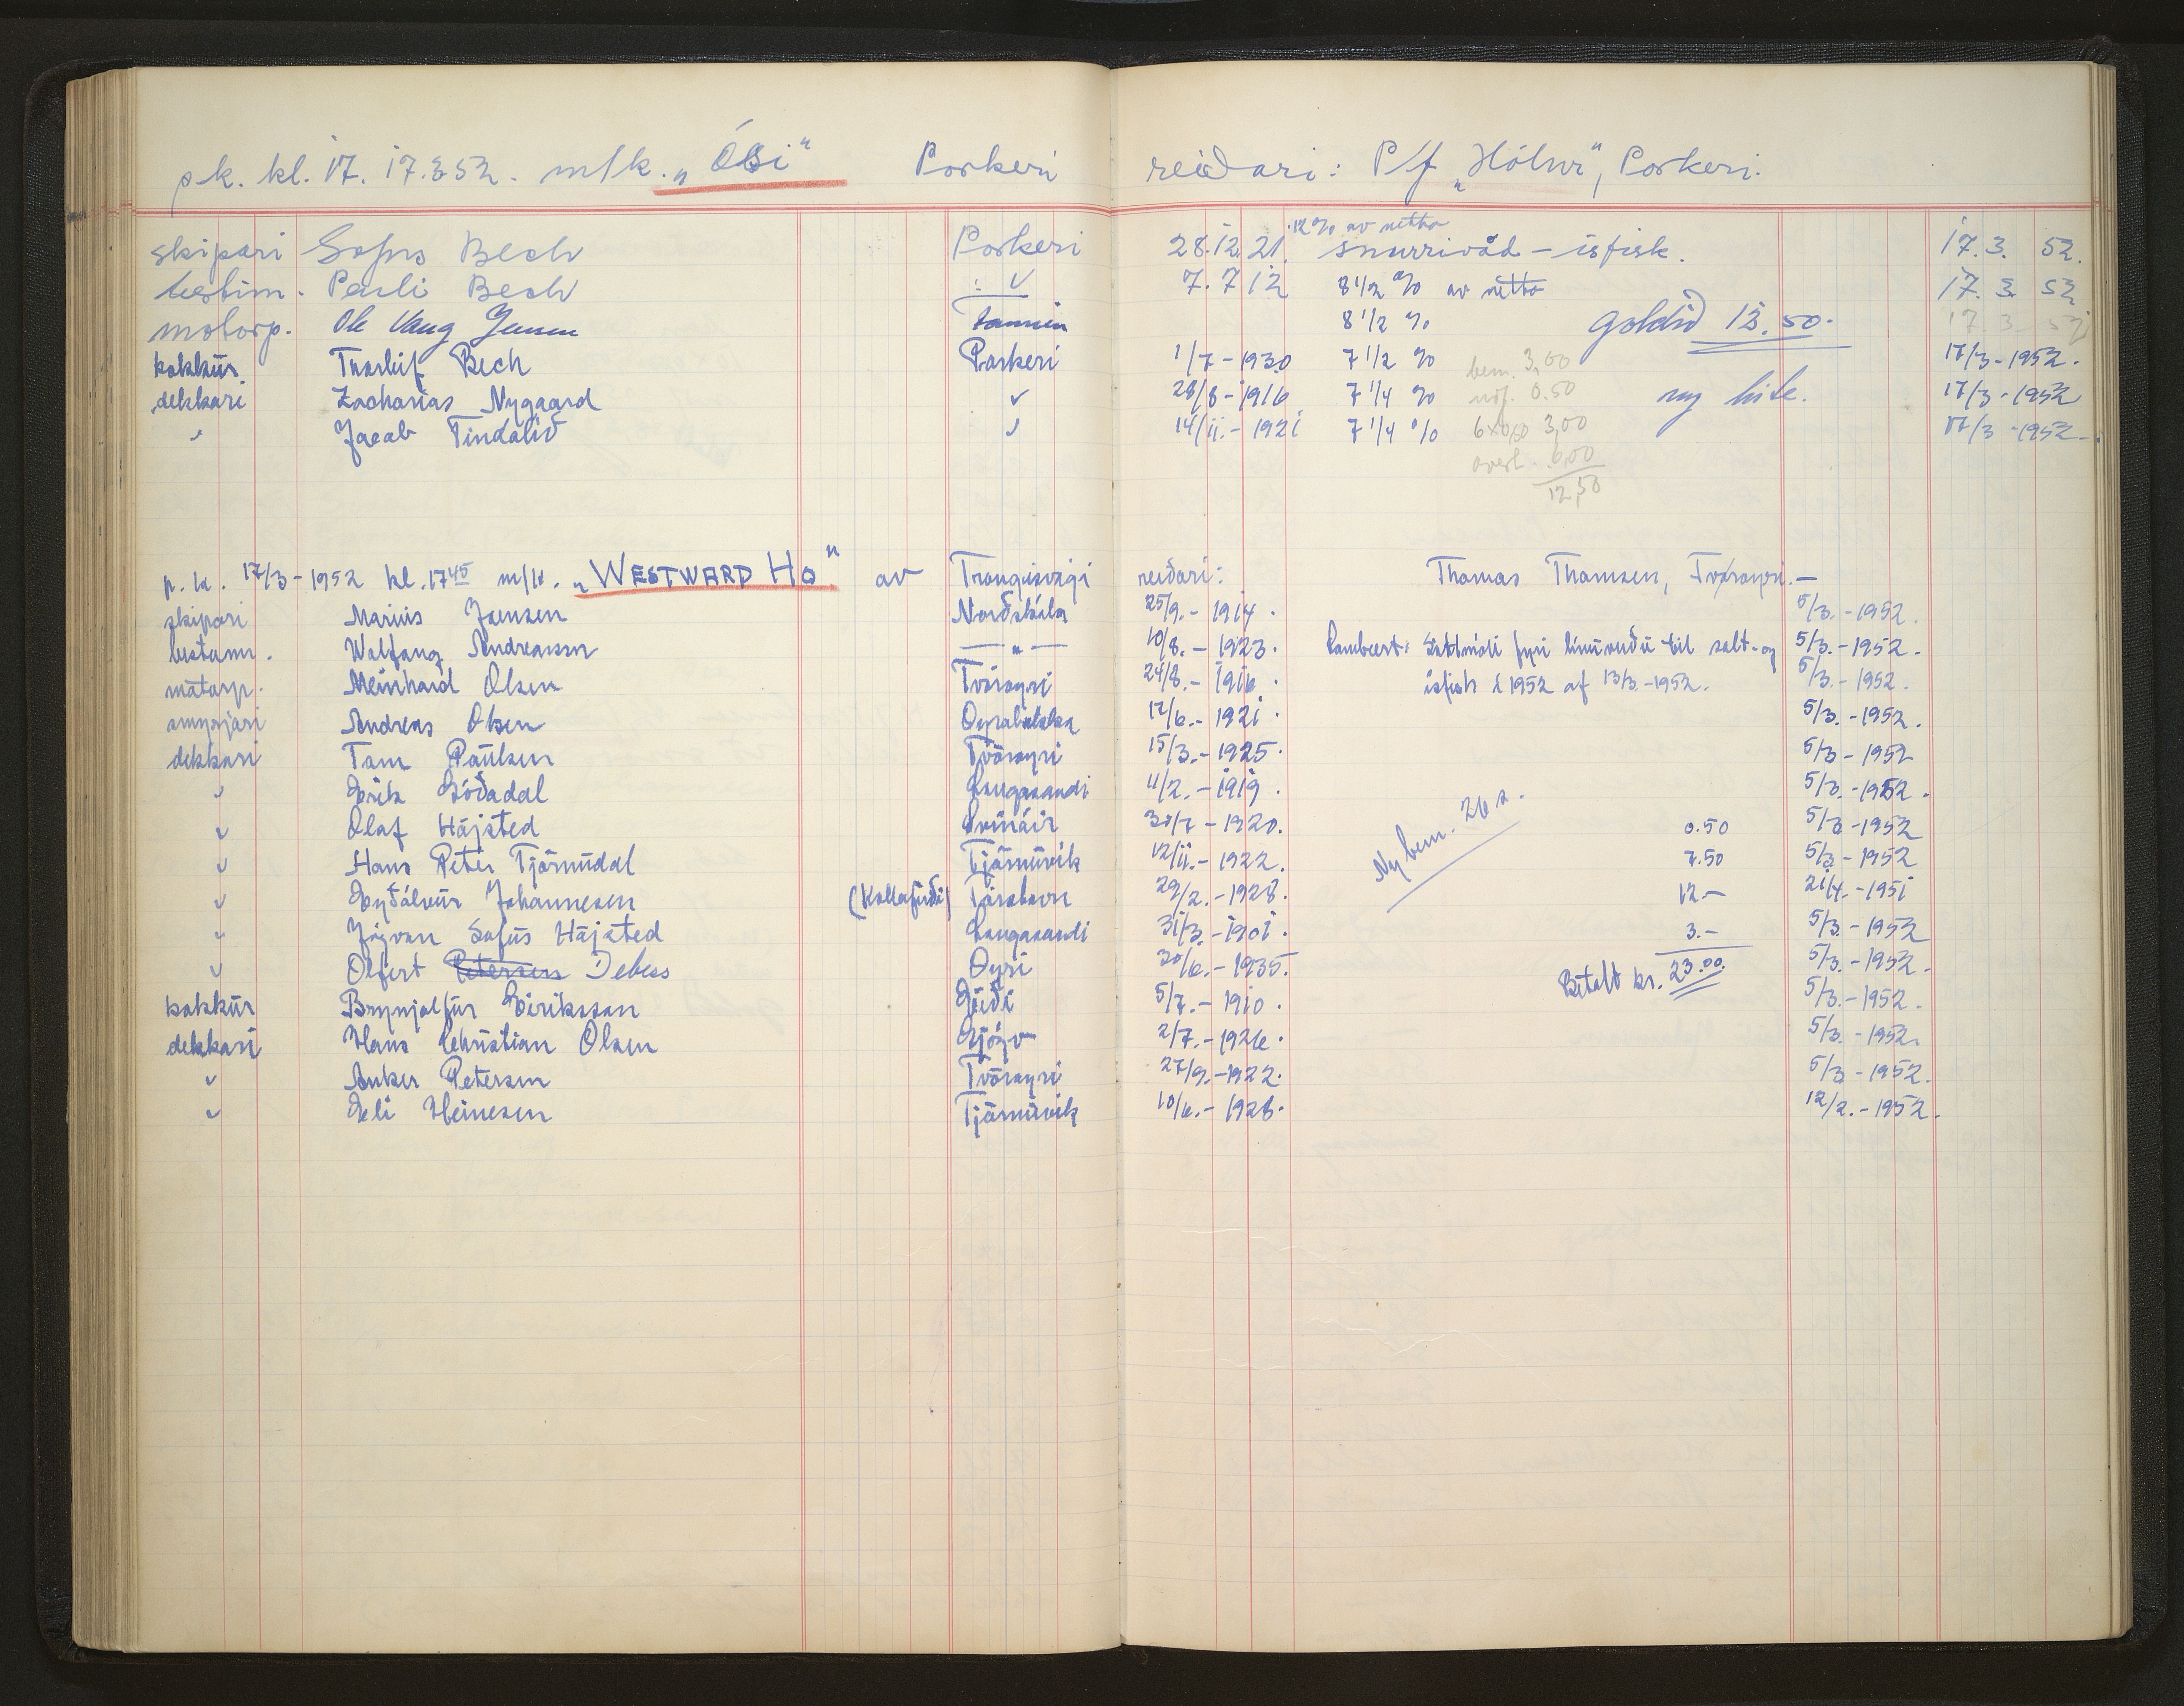 p.k. kl. 17. 17.3.52. m/k. „Ósi“ Porkeri reiðari: P/f „Hólmr“, Porkeri.
12 % av netto
skipari Sofus Bech Porkeri 28.12.21. snurrivåd – isfisk. 17.3. 52.
bestim. Pauli Bech " 7.7 12 8 1/2 % av netto 17.3 52
motorp. Ole Vang Jensen 8 1/2 % goldið 13.50. 17.3 52
kokkur Thorleif Bech Porkeri 1/7 - 1930 7 1/2 % bem. 3,00 17/3 - 1952.
dekkari Zacharias Nygaard " 28/8 - 1916 7 1/4 % 0.50 ny liste. 17/3 - 1952
" Jacob Tindalið " 14/11. - 1921 7 1/4 % 6x0,50 3,00 17/3 - 1952
6,00
12,50
p.k. 17/3 - 1952 kl. 17 45 m/k. „WESTWARD HO“ av Trongisvági reiðari: Thomas Thomsen, Tvøroyri. –
skipari Marius Joensen Norðskála 25/9. - 1914. 5/3. - 1952.
bestum. Wolfang Andreassen — " — 10/8. - 1923. Sáttmáli fyri línuveiðu til salt- og 5/3. - 1952.
motorp. Meinhard Olsen Tvöroyri 24/8. - 1916. ísfisk í 1952 af 13/3. - 1952. 5/3. - 1952.
smyrjari Andreas Olsen Oyrabakka 17/6. - 1921. 5/3. - 1952.
dekkari Tom Paulsen Tvöroyri 15/3. - 1925. 5/3 - 1952
" Eirik Góðadal Langasandi 11/2. - 1919. 5/3. - 1952.
" Olaf Højsted Svínáir 30/7 - 1920. Ny bem. 26 s. 0.50 5/3 - 1952
" Hans Peter Tjörnudal Tjörnuvík 12/11. - 1922. 7.50 5/3 - 1952
" Eyðálvur Johannesen (Kollafirði) Tórshavn 29/2. - 1928. 12 – 21/4. - 1951
" Jógvan Sofus Højsted Langasandi 31/3. - 1901. 3. – 5/3. - 1952
" Olfert Petersen Debess Oyri 30/6. - 1935. Betalt kr. 23.00. 5/3. - 1952.
kokkur Brynjolfur Eiriksson Eiði 5/7. - 1910. 5/3. - 1952.
dekkari Hans Christian Olsen Gjógv 2/7. - 1926. 5/3. - 1952.
" Anker Petersen Tvöroyri 27/9. - 1922. 5/3 - 1952.
" Eli Heinesen Tjörnuvík 10/6. - 1928. 12/2. - 1952.